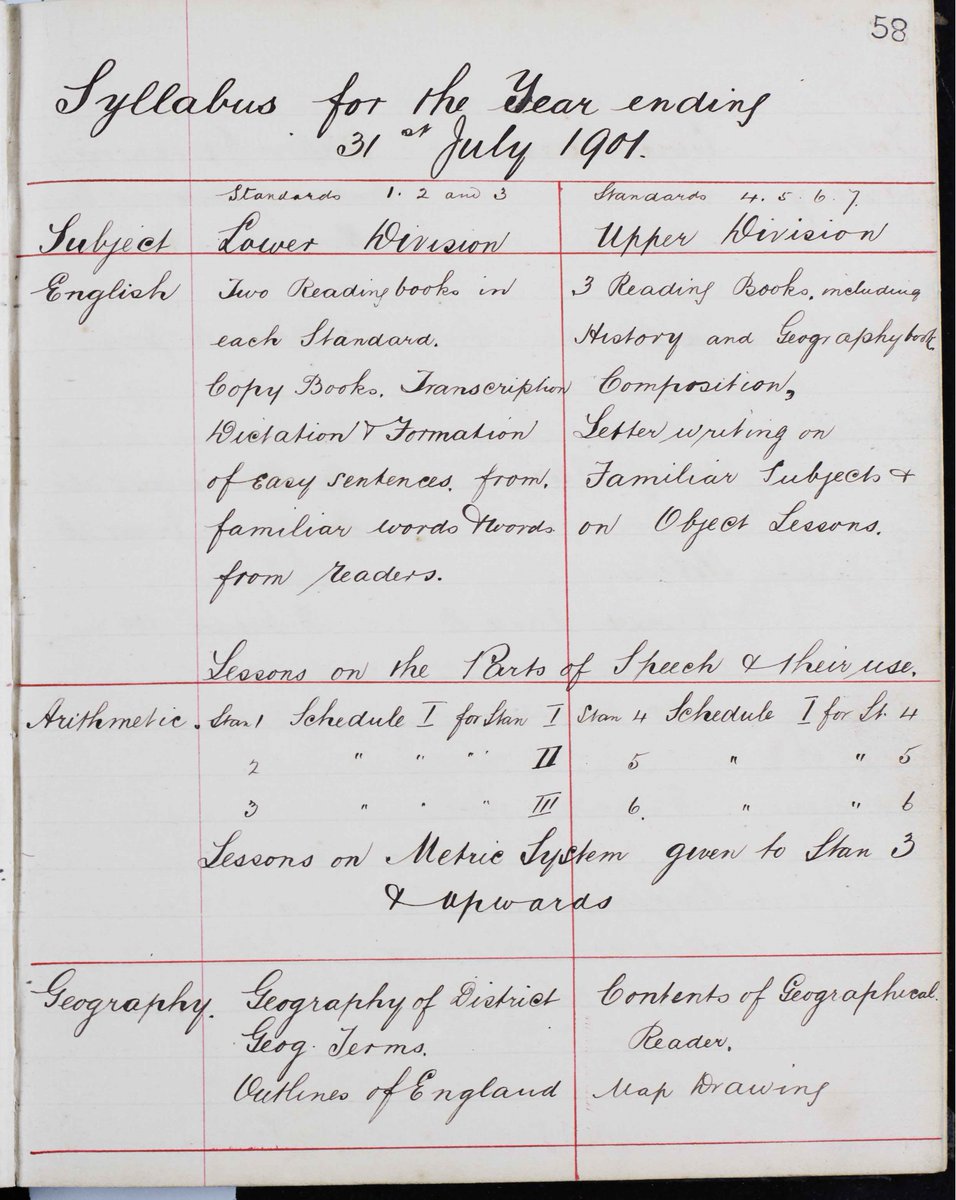 58
Syllabus for the Year ending
31st July 1901.
Standards 1. 2 and 3
Standards 4. 5. 6. 7.
Subject Lower Division Upper Division
English
Two Reading books in
each Standard.
Copy Books. Transcription
Dictation & Formation
of easy sentences. from.
familiar words & words
from readers.
3 Reading Books. including
History and Geography book.
Composition,
Letter writing on
Familiar Subjects &
on Object Lessons.
Lessons on the Parts of Speech & their use.
Arithmetic. Stan 1 Schedule I for Stan I Stan 4 Schedule I for St. 4
2 " " " II 5 " " 5
3 " " " III 6. " " 6
Lessons on Metric System given to Stan 3
& upwards
Geography.
Geography of District
Geog. Terms.
Outlines of England
Contents of Geographical.
Reader.
Map Drawing